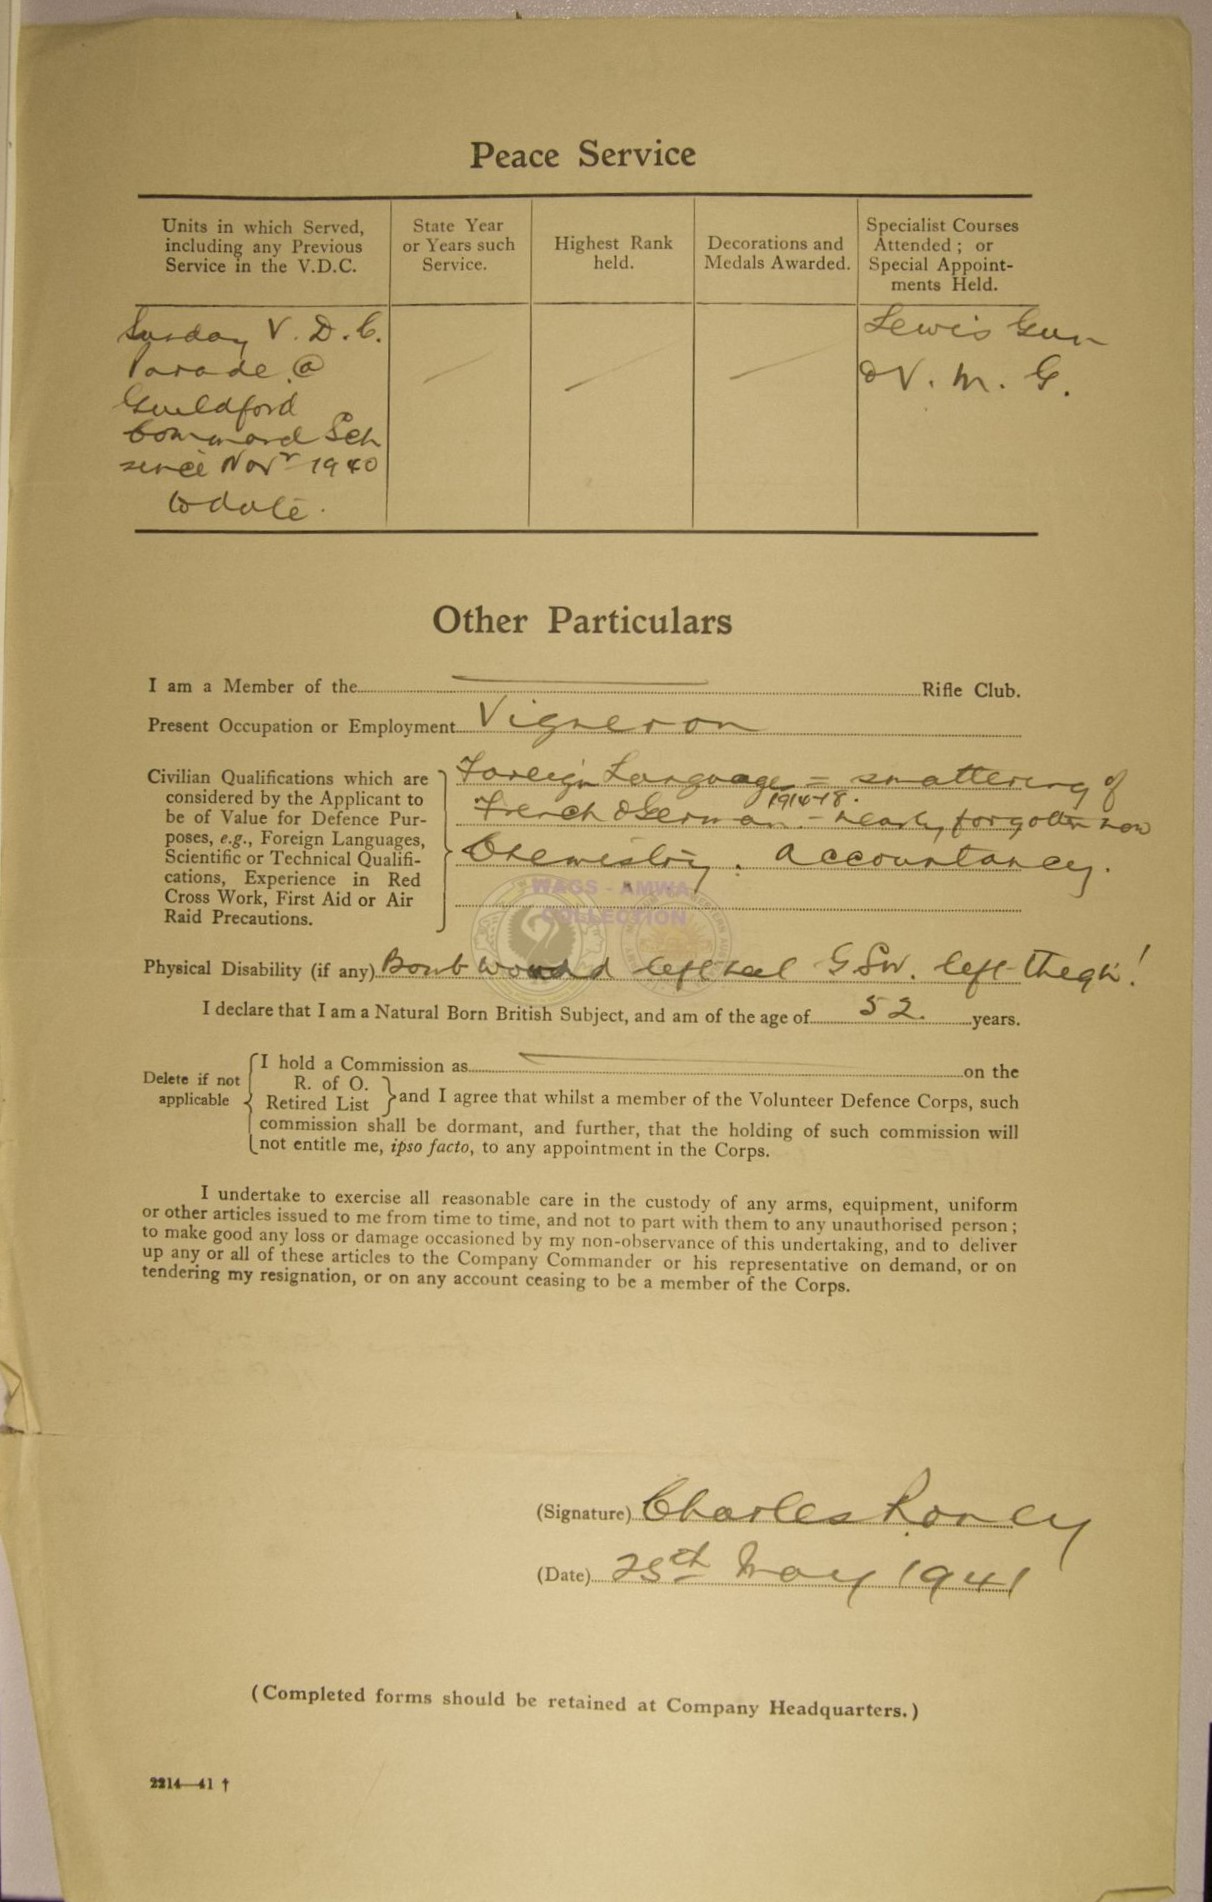 Peace Service
Units in which Served,
including any Previous
Service in the V.D.C.
State Year
or Years such
Service.
Highest Rank
held.
Decorations and
Medals Awarded.
Specialist Courses
Attended ; or
Special Appoint-
ments Held.
Sunday V. D. C.
Parade @
Guildford
Command Sch
since Novr 1940
to date.
Lewis Gun
& V. M. G.
Other Particulars
I am a Member of the Rifle Club.
Present Occupation or Employment Vigneron
Civilian Qualifications which are
considered by the Applicant to
be of Value for Defence Pur-
poses, e.g., Foreign Languages,
Scientific or Technical Qualifi-
cations, Experience in Red
Cross Work, First Aid or Air
Raid Precautions.
Foreign Language = smattering of
1914-18.
French & German - nearly forgotten now
Chemistry. Accountancy.
WAGS - AMWA
COLLECTION
Physical Disability (if any) Bomb wound left heel GSW. left thegh!
I declare that I am a Natural Born British Subject, and am of the age of 52. years.
Delete if not
applicable
I hold a Commission as on the
R. of O.
Retired List
and I agree that whilst a member of the Volunteer Defence Corps, such
commission shall be dormant, and further, that the holding of such commission will
not entitle me, ipso facto, to any appointment in the Corps.
I undertake to exercise all reasonable care in the custody of any arms, equipment, uniform
or other articles issued to me from time to time, and not to part with them to any unauthorised person ;
to make good any loss or damage occasioned by my non-observance of this undertaking, and to deliver
up any or all of these articles to the Company Commander or his representative on demand, or on
tendering my resignation, or on any account ceasing to be a member of the Corps.
(Signature) Charles Roney
(Date) 25th May 1941
(Completed forms should be retained at Company Headquarters.)
2214—41 †